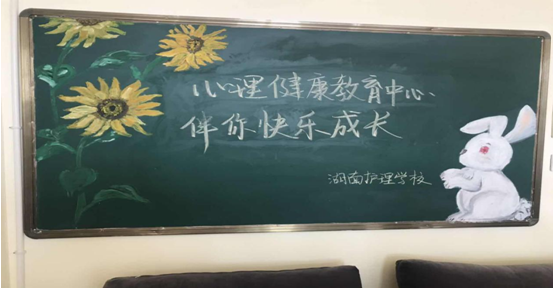 心理健康教育中心
伴你快乐成长
湖南护理学校